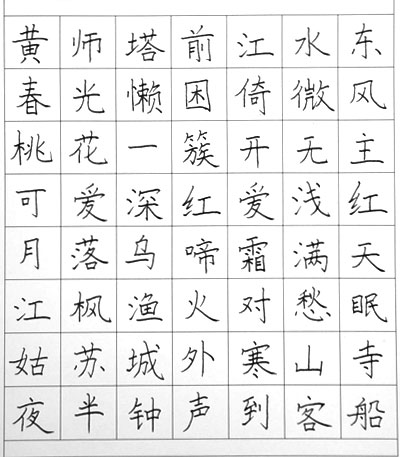 黄师塔前江水东
春光懒困倚微风
桃花一簇开无主
可爱深红爱浅红
月落乌啼霜满天
江枫渔火对愁眠
姑苏城外寒山寺
夜半钟声到客船